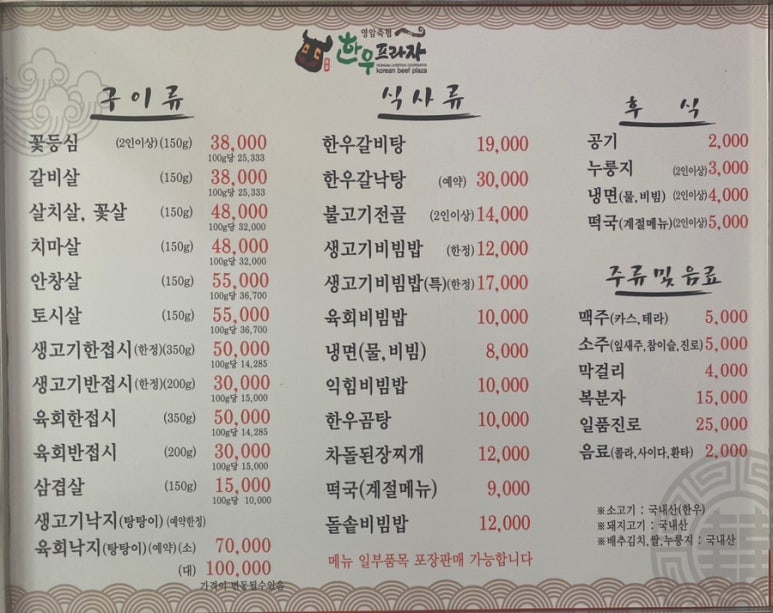 영암축협
한우프라자
korean beef plaza
구이류
꽃등심 (2인이상)(150g) 38,000
100g당 25,333
갈비살 (150g) 38,000
100g당 25,333
살치살, 꽃살 (150g) 48,000
100g당 32,000
치마살 (150g) 48,000
100g당 32,000
안창살 (150g) 55,000
100g당 36,700
토시살 (150g) 55,000
100g당 36,700
생고기한접시(한정)(350g) 50,000
100g당 14,285
생고기반접시(한정)(200g) 30,000
100g당 15,000
육회한접시 (350g) 50,000
100g당 14,285
육회반접시 (200g) 30,000
100g당 15,000
삼겹살 (150g) 15,000
100g당 10,000
생고기낙지(탕탕이)(예약한정)
육회낙지(탕탕이)(예약)(소) 70,000
(대) 100,000
가격이 변동될수있음
식사류
한우갈비탕 19,000
한우갈낙탕 (예약) 30,000
불고기전골 (2인이상) 14,000
생고기비빔밥 (한정) 12,000
생고기비빔밥(특)(한정) 17,000
육회비빔밥 10,000
냉면(물,비빔) 8,000
익힘비빔밥 10,000
한우곰탕 10,000
차돌된장찌개 12,000
떡국(계절메뉴) 9,000
돌솥비빔밥 12,000
메뉴 일부품목 포장판매 가능합니다
후식
공기 2,000
누룽지 (2인이상) 3,000
냉면(물,비빔) (2인이상) 4,000
떡국(계절메뉴)(2인이상) 5,000
주류 및 음료
맥주(카스,테라) 5,000
소주(잎새주,참이슬,진로) 5,000
막걸리 4,000
복분자 15,000
일품진로 25,000
음료(콜라,사이다,환타) 2,000
※소고기 : 국내산(한우)
※돼지고기 : 국내산
※배추김치,쌀,누룽지 : 국내산